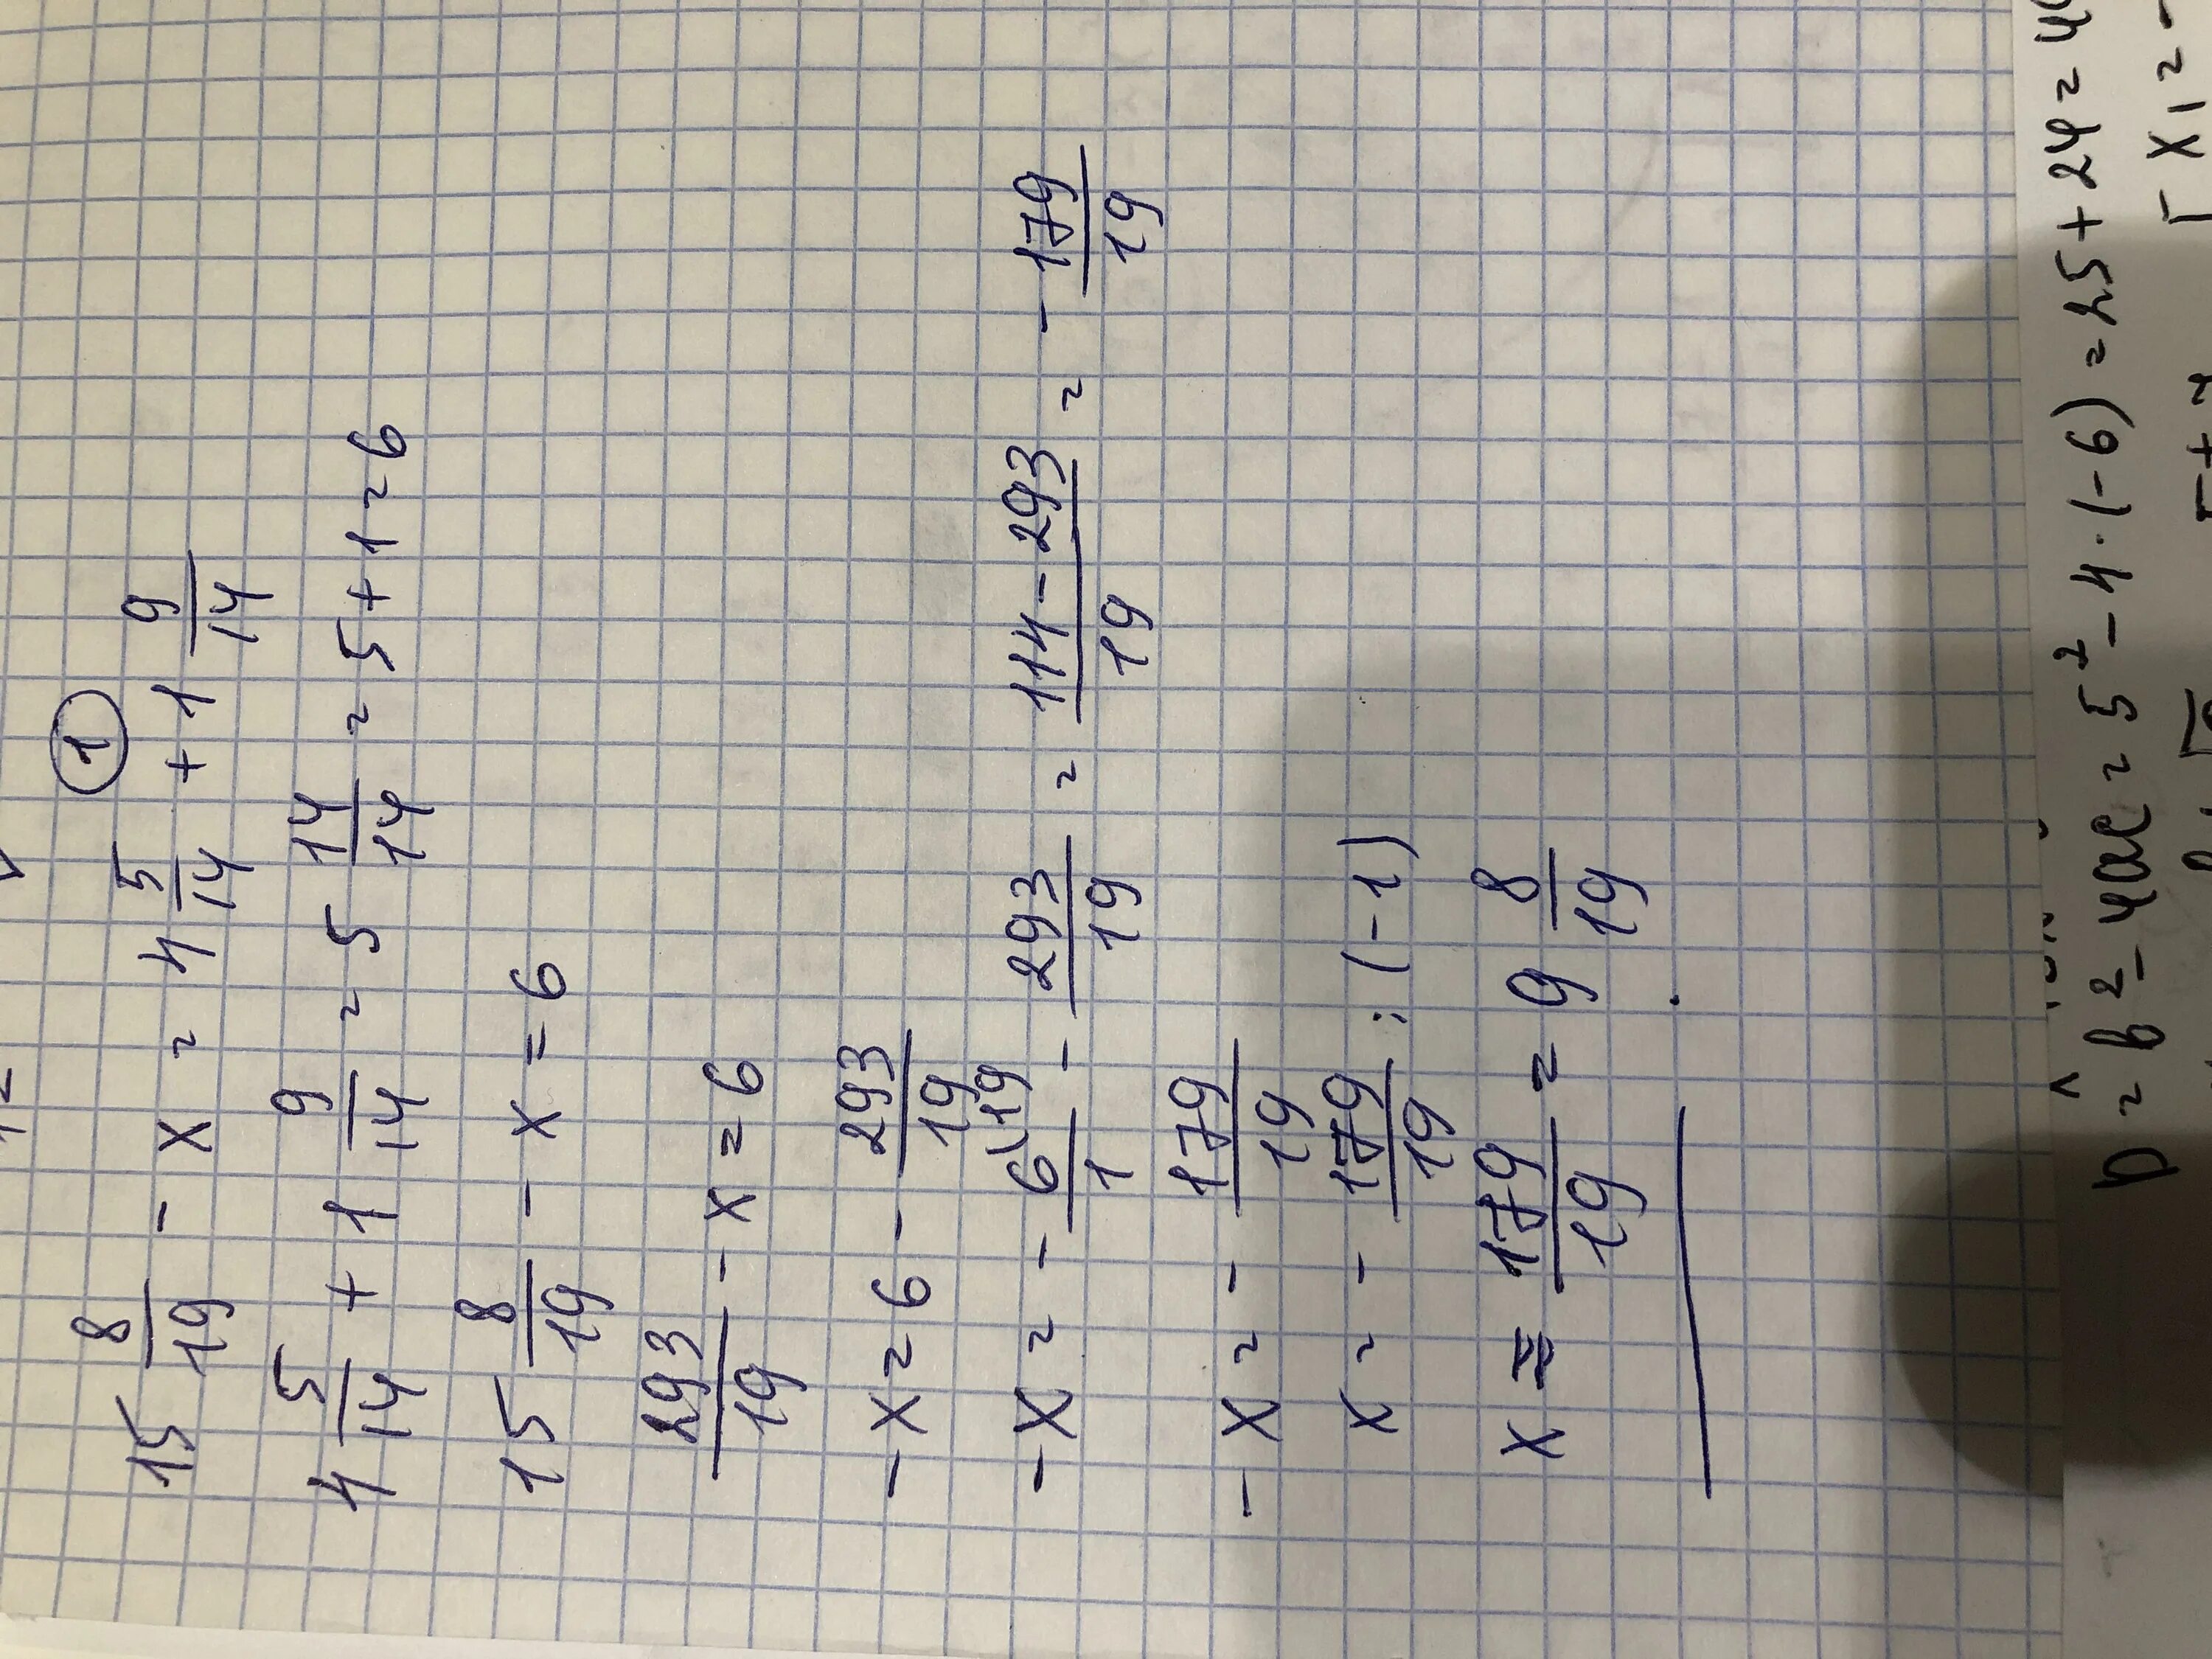 ①
15 8/19 - x = 4 5/14 + 1 9/14
4 5/14 + 1 9/14 = 5 14/14 = 5 + 1 = 6
15 8/19 - x = 6
293/19 - x = 6
-x = 6 - 293/19
-x = - 6\19/1 - 293/19 = 114-293/19 = - 179/19
-x = - 179/19
x = - 179/19 : (-1)
x = 179/19 = 9 8/19
D = b² - 4ac = 5² - 4·(-6) = 25 + 24 = 4
x₁ = -